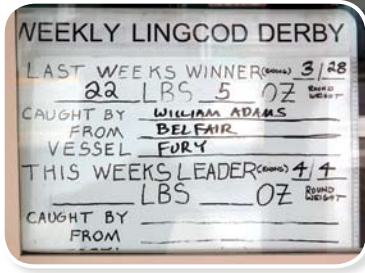 WEEKLY LINGCOD DERBY
LAST WEEKS WINNER(ENDING) 3/28
22 LBS 5 OZ ROUND WEIGHT
CAUGHT BY WILLIAM ADAMS
FROM BELFAIR
VESSEL FURY
THIS WEEKS LEADER(ENDING) 4/4
LBS OZ ROUND WEIGHT
CAUGHT BY
FROM